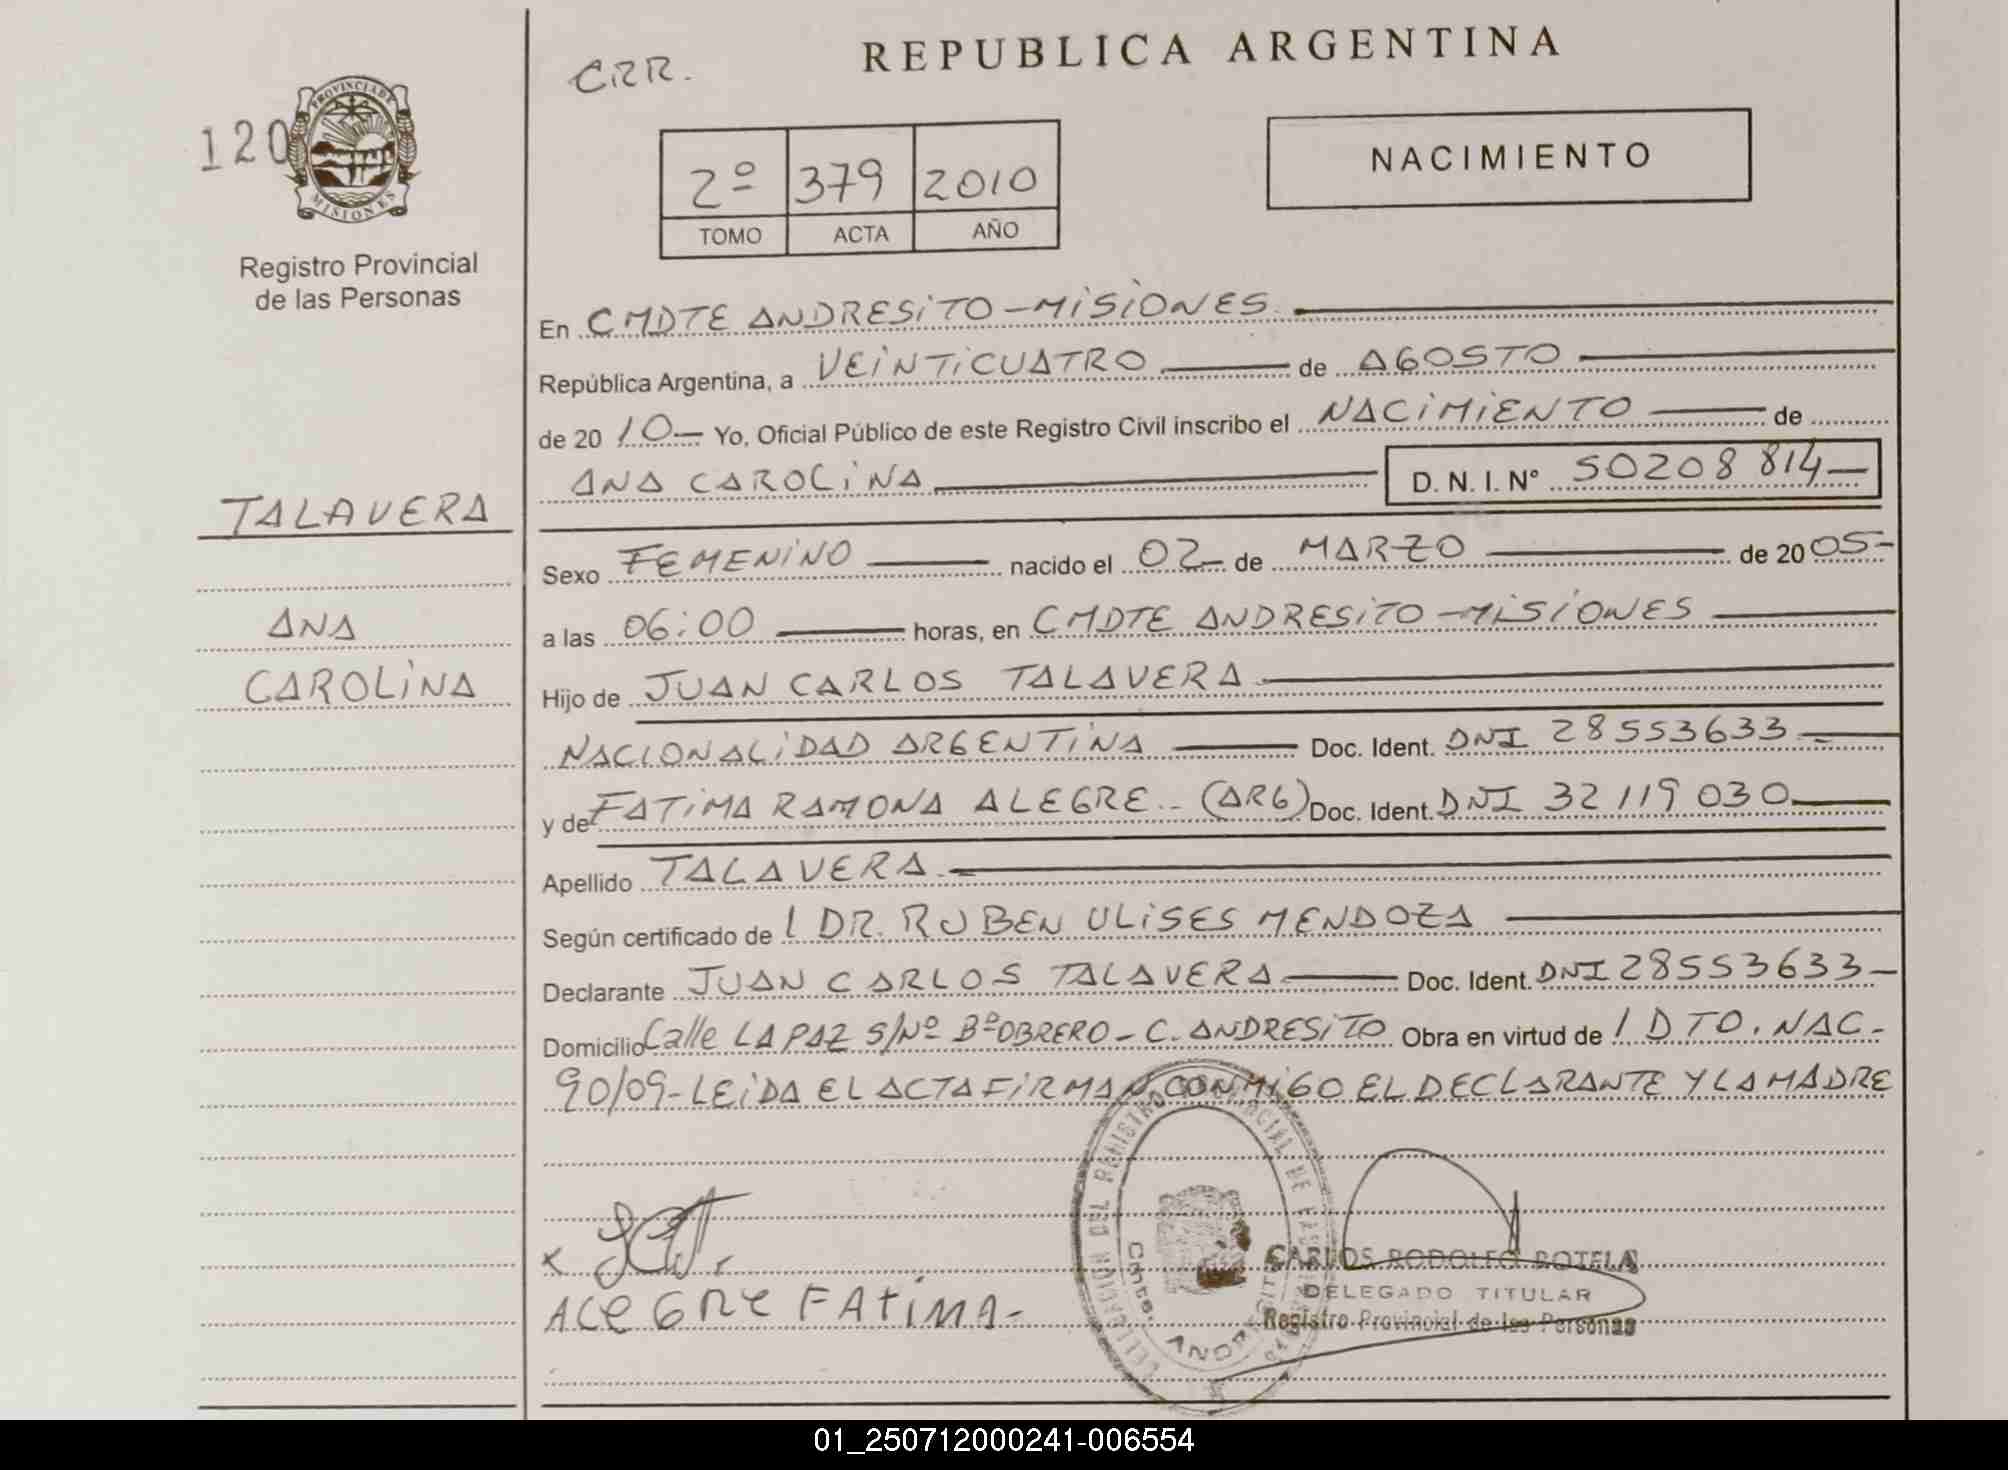 CRR.
REPUBLICA ARGENTINA
120
PROVINCIA DE
MISIONES
Registro Provincial
de las Personas
2º 379 2010
TOMO ACTA AÑO
NACIMIENTO
En CMDTE ANDRESITO - MISIONES
República Argentina, a VEINTICUATRO de AGOSTO
de 20 10 Yo, Oficial Público de este Registro Civil inscribo el NACIMIENTO de
ANA CAROLINA D. N. I. Nº 50208 814
TALAVERA
Sexo FEMENINO nacido el 02 de MARZO de 20 05
ANA
a las 06:00 horas, en CMDTE ANDRESITO - MISIONES
CAROLINA
Hijo de JUAN CARLOS TALAVERA
NACIONALIDAD ARGENTINA Doc. Ident. DNI 28553633
y de FATIMA RAMONA ALEGRE - (ARG) Doc. Ident. DNI 32 119 030
Apellido TALAVERA
Según certificado de / DR. RUBEN ULISES MENDOZA
Declarante JUAN CARLOS TALAVERA Doc. Ident. DNI 28553633
Domicilio Calle LA PAZ S/Nº Bº OBRERO - C. ANDRESITO Obra en virtud de / DTO. NAC.
90/09 - LEIDA EL ACTA FIRMAN CONMIGO EL DECLARANTE Y LA MADRE
DELEGACION DEL REGISTRO PROVINCIAL DE LAS PERSONAS
Cmte. ANDRESITO
x
ALEGRE FATIMA -
CARLOS RODOLFO BOTELA
DELEGADO TITULAR
Registro Provincial de las Personas
01_250712000241-006554